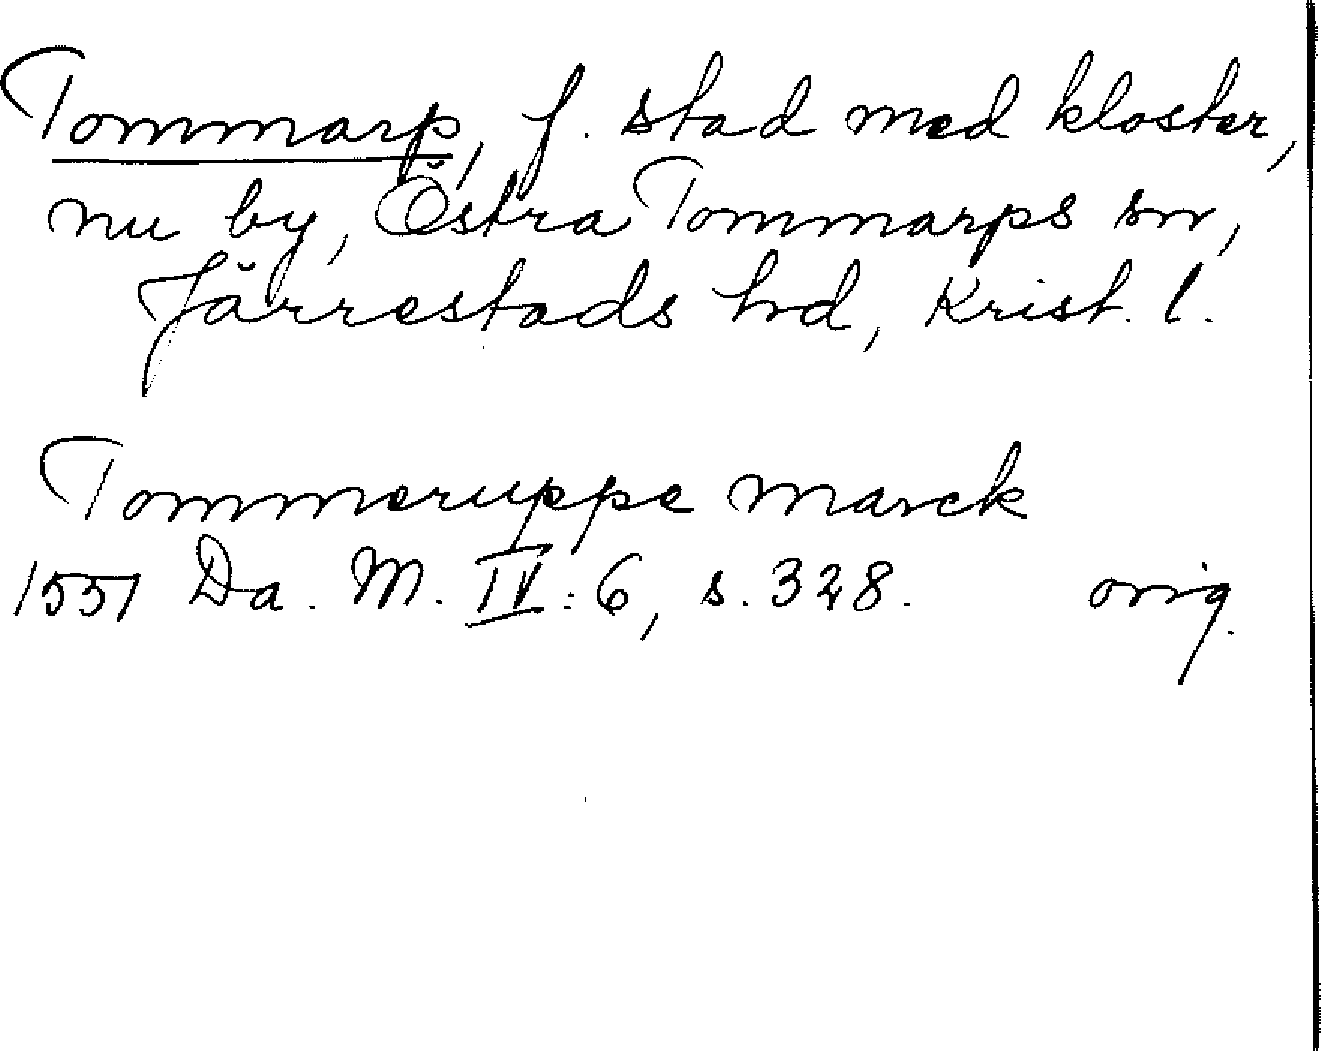 Tommarp, f. stad med kloster,
nu by, Östra Tommarps sn,
Järrestads hd, Krist. l.
Tommeruppe marck
1551 Da. M. IV: 6, s. 328. orig.